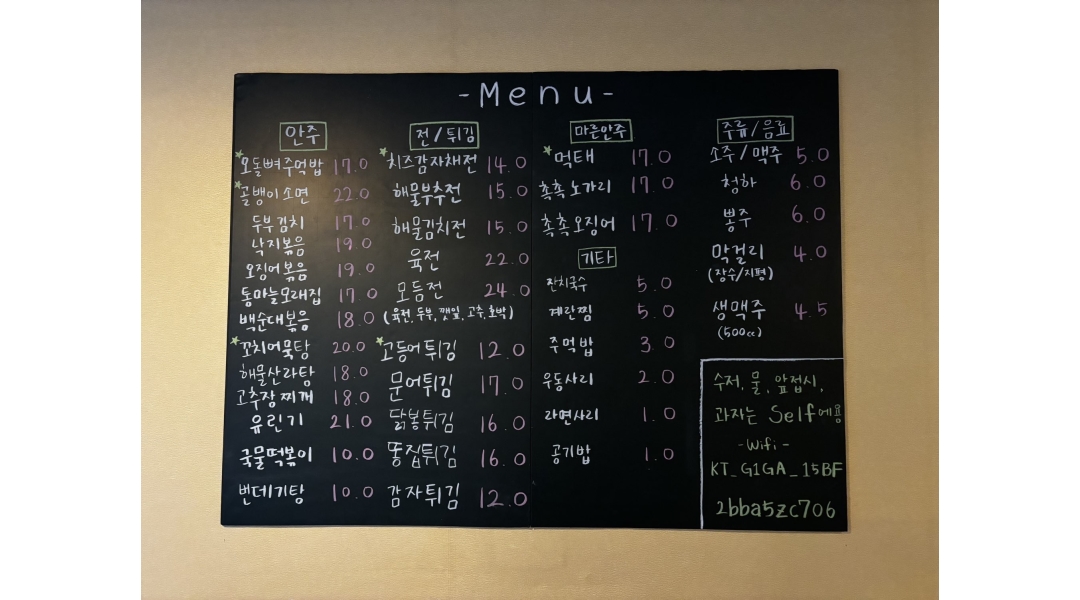 - Menu -
안주
오돌뼈주먹밥 17.0
골뱅이소면 22.0
두부김치 17.0
낙지볶음 19.0
오징어볶음 19.0
통마늘모래집 17.0
백순대볶음 18.0
꼬치어묵탕 20.0
해물산라탕 18.0
고추장찌개 18.0
유린기 21.0
국물떡볶이 10.0
번데기탕 10.0
전/튀김
치즈감자채전 14.0
해물부추전 15.0
해물김치전 15.0
육전 22.0
모듬전 24.0
(육전, 두부, 깻잎, 고추, 호박)
고등어튀김 12.0
문어튀김 17.0
닭봉튀김 16.0
똥집튀김 16.0
감자튀김 12.0
마른안주
먹태 17.0
촉촉노가리 17.0
촉촉오징어 17.0
기타
잔치국수 5.0
계란찜 5.0
주먹밥 3.0
우동사리 2.0
라면사리 1.0
공기밥 1.0
주류/음료
소주/맥주 5.0
청하 6.0
뽕주 6.0
막걸리 4.0
(장수/지평)
생맥주 4.5
(500cc)
수저, 물, 앞접시,
과자는 Self에용
- Wifi -
KT_G1GA_15BF
2bba5zc706